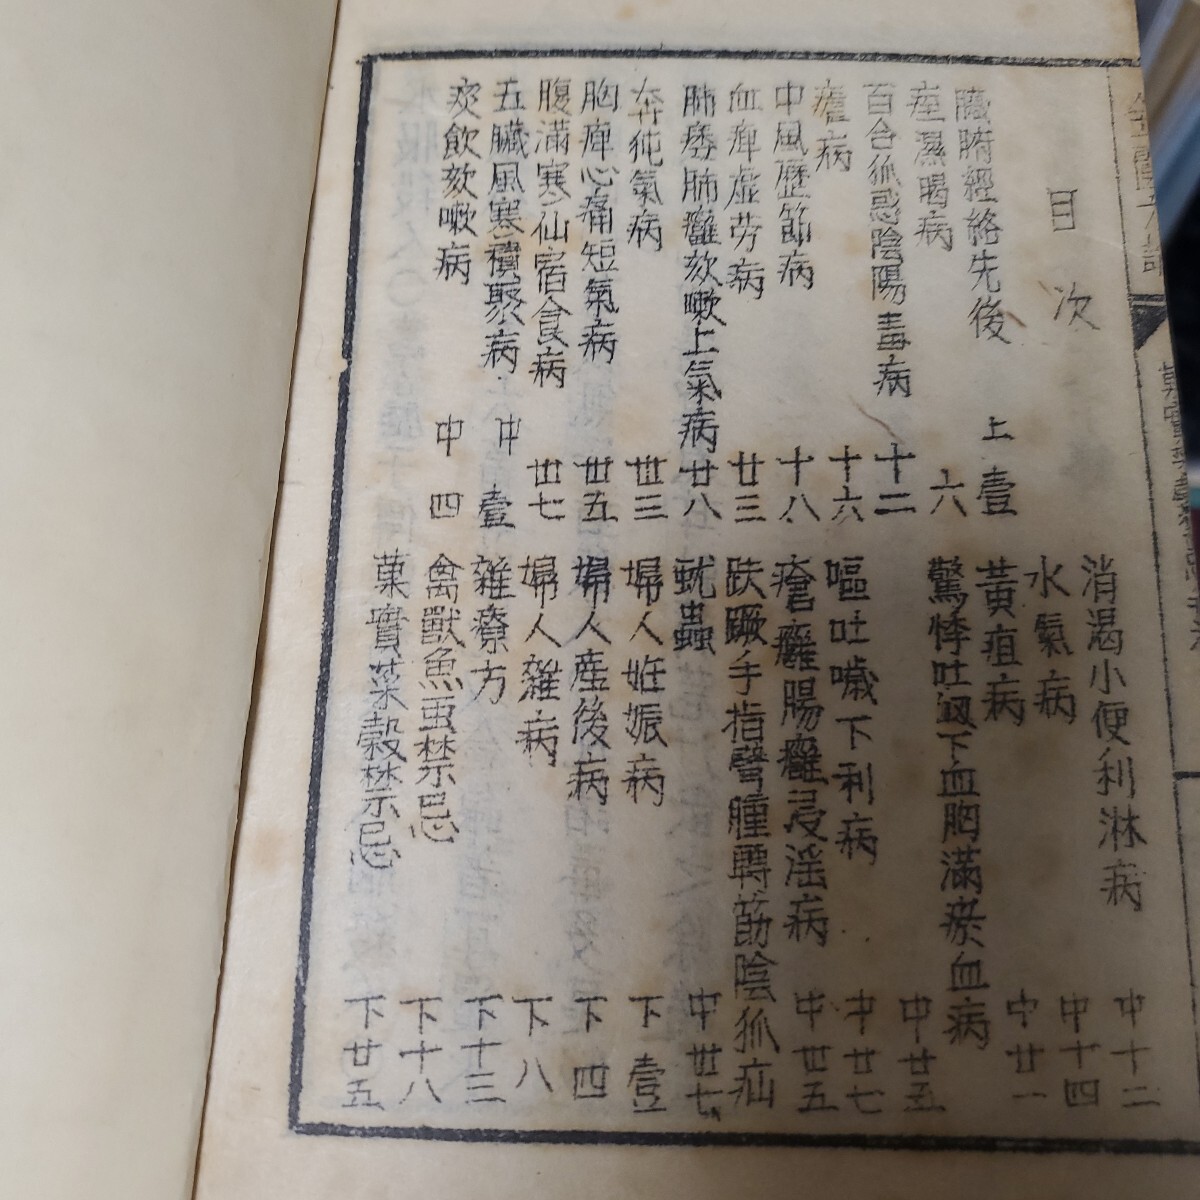 目次
臟腑經絡先後 上壹
痙濕暍病 六
百合狐惑陰陽毒病 十二
瘧病 十六
中風歷節病 十八
血痺虛劳病 廿三
肺痿肺癰欬嗽上氣病 廿八
奔㹠氣病 丗三
胸痺心痛短氣病 丗五
腹滿寒仙宿食病 丗七
五臟風寒積聚病 中壹
痰飲欬嗽病 中四
消渴小便利淋病 中十二
水氣病 中十四
黃疸病 中廿一
驚悸吐衂下血胸滿瘀血病 中廿五
嘔吐噦下利病 中廿七
瘡癰腸癰浸淫病 中丗五
趺蹶手指臂腫轉筋陰狐疝
蚘蟲 中丗七
婦人妊娠病 下壹
婦人產後病 下四
婦人雜病 下八
雜療方 下十三
禽獸魚虫禁忌 下十八
菓實菜穀禁忌 下廿五